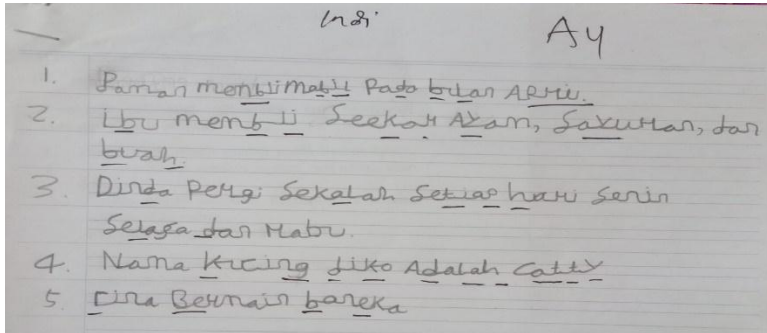 Indi
Ay
1. Paman membli mabli Pada bulan APRil.
2. ibu membli Seekor AYam, Sayuran, dan
buah.
3. Dinda Pergi Sekalah Setiap hari Senin
Selasa dan Rabu.
4. Nama Kucing diko Adalah Catty
5. Cira Bermain boneka